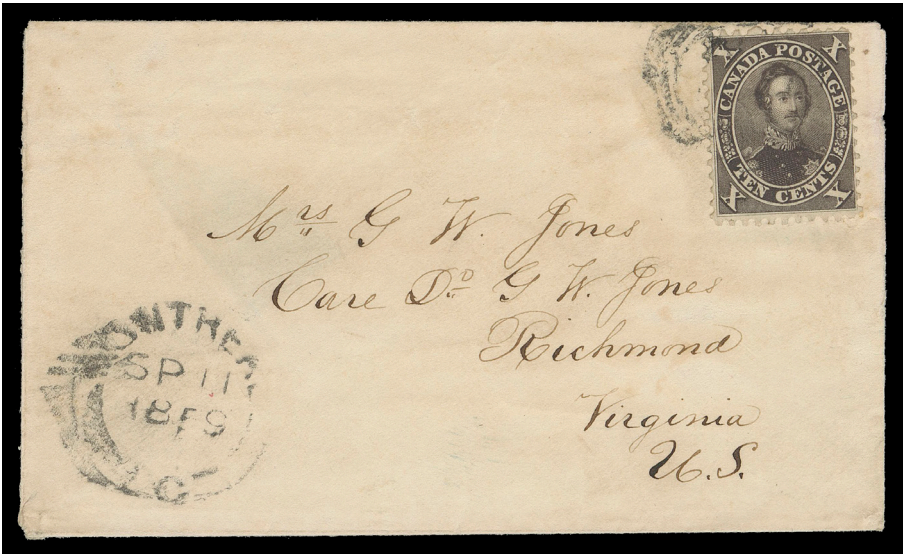 X X
CANADA POSTAGE
TEN CENTS
X X
Mrs G W. Jones
Care Do G W. Jones
Richmond
Virginia
U.S.
SP 11
1859